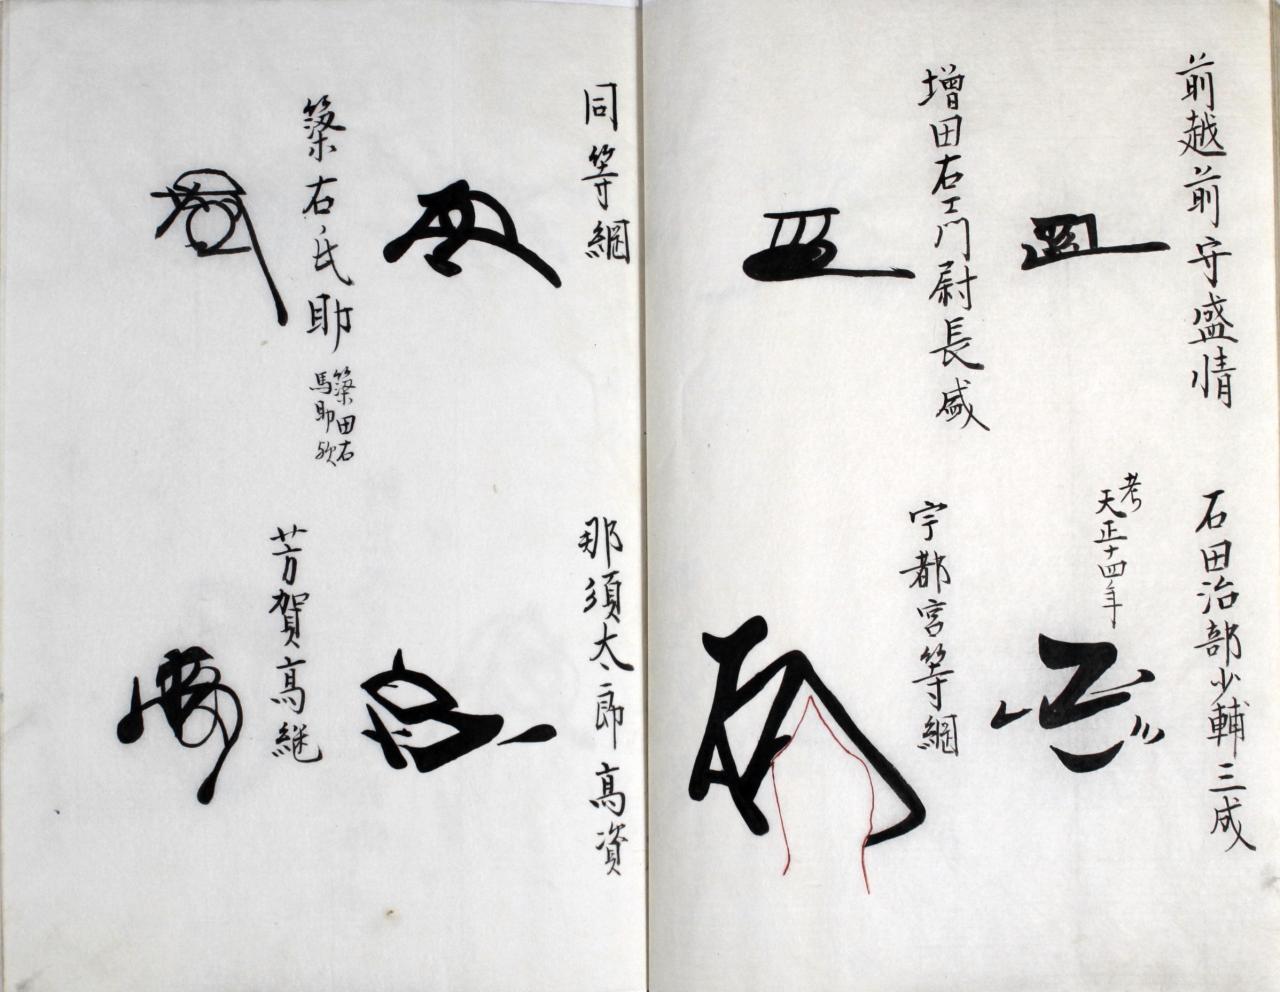 前越前守盛情
石田治部少輔三成
考
天正十四年
増田右エ門尉長盛
宇都宮等綱
同等綱
那須太郎高資
簗右氏助
簗田右
馬助歟
芳賀高継